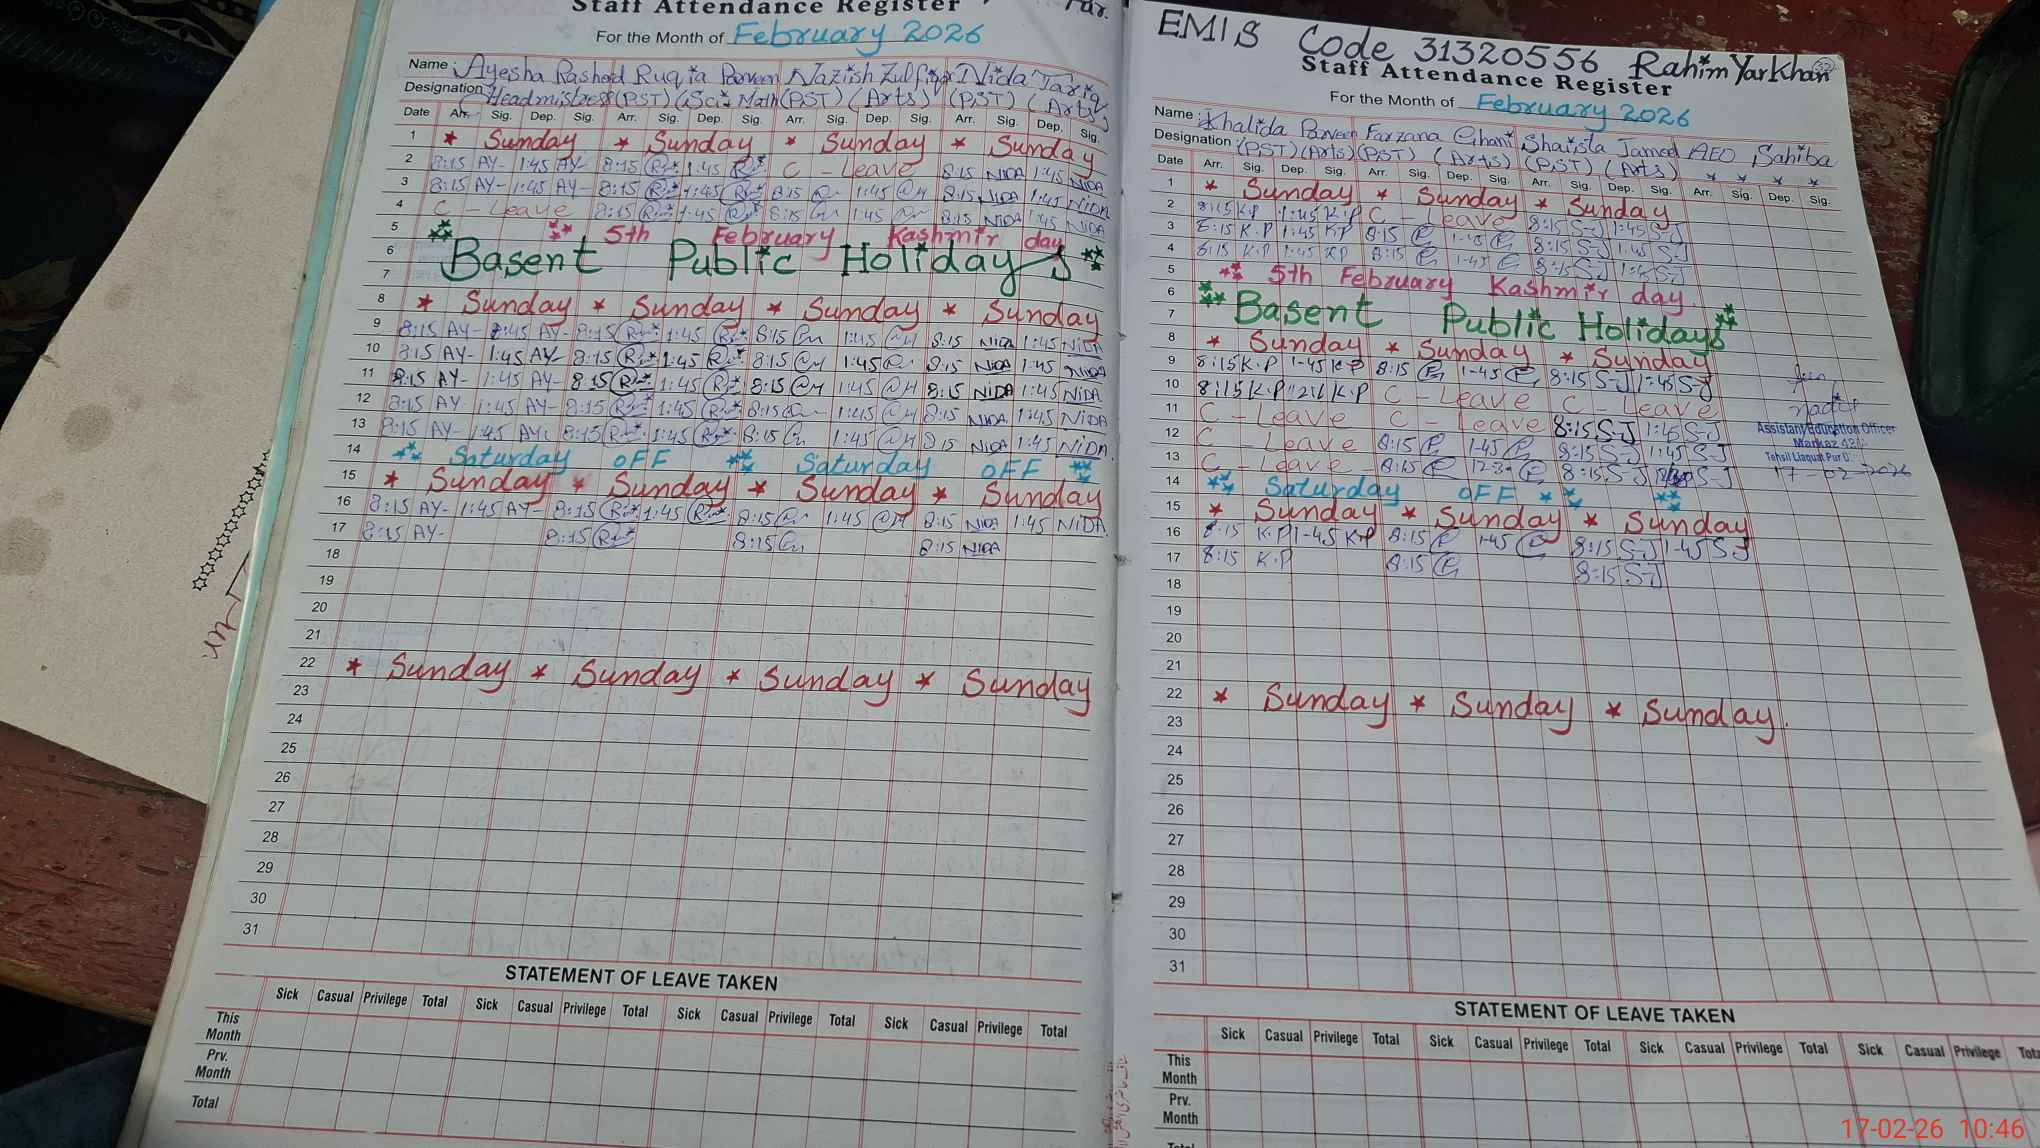 Staff Attendance Register
For the Month of February 2026
Name : Ayesha Rasheed Ruqia Parveen Nazish Zulfiqar Nida Tariq
Designation : Headmistress (PST) (Sci: Math (PST) (Arts) (PST) (Arts)
Date Arr. Sig. Dep. Sig. Arr. Sig. Dep. Sig. Arr. Sig. Dep. Sig. Arr. Sig. Dep. Sig.
1 * Sunday * Sunday * Sunday * Sunday
2 8:15 AY- 1:45 AY- 8:15 1:45 C - Leave 8:15 NIDA 1:45 NIDA
3 8:15 AY- 1:45 AY- 8:15 1:45 8:15 1:45 8:15 NIDA 1:45 NIDA
4 C - Leave 8:15 1:45 8:15 1:45 8:15 NIDA 1:45 NIDA
5 5th February Kashmir day
6 Basent Public Holidays
7
8 * Sunday * Sunday * Sunday * Sunday
9 8:15 AY- 1:45 AY- 8:15 1:45 8:15 1:45 8:15 NIDA 1:45 NIDA
10 8:15 AY- 1:45 AY- 8:15 1:45 8:15 1:45 8:15 NIDA 1:45 NIDA
11 8:15 AY- 1:45 AY- 8:15 1:45 8:15 1:45 8:15 NIDA 1:45 NIDA
12 8:15 AY- 1:45 AY- 8:15 1:45 8:15 1:45 8:15 NIDA 1:45 NIDA
13 8:15 AY- 1:45 AY- 8:15 1:45 8:15 1:45 8:15 NIDA 1:45 NIDA
14 Saturday OFF Saturday OFF
15 * Sunday * Sunday * Sunday * Sunday
16 8:15 AY- 1:45 AY- 8:15 1:45 8:15 1:45 8:15 NIDA 1:45 NIDA
17 8:15 AY- 8:15 8:15 8:15 NIDA
18
19
20
21
22 * Sunday * Sunday * Sunday * Sunday
23
24
25
26
27
28
29
30
31
STATEMENT OF LEAVE TAKEN
Sick Casual Privilege Total Sick Casual Privilege Total Sick Casual Privilege Total Sick Casual Privilege Total
This Month
Prv. Month
Total
EMIS Code 31320556 Rahim Yar Khan
32
Staff Attendance Register
For the Month of February 2026
Name : Khalida Parveen Farzana Ghani Shaista Jameel AEO Sahiba
Designation : (PST) (Arts) (PST) (Arts) (PST) (Arts) * * * *
Date Arr. Sig. Dep. Sig. Arr. Sig. Dep. Sig. Arr. Sig. Dep. Sig. Arr. Sig. Dep. Sig.
1 * Sunday * Sunday * Sunday
2 8:15 K.P 1:45 K.P C - Leave 8:15 S-J 1:45 S-J
3 8:15 K.P 1:45 K.P 8:15 1-45 8:15 S-J 1:45 S-J
4 8:15 K.P 1:45 K.P 8:15 1-45 8:15 S-J 1:45 S-J
5 5th February Kashmir day.
6 Basent Public Holidays
7
8 * Sunday * Sunday * Sunday
9 8:15 K.P 1-45 K.P 8:15 1-45 8:15 S-J 1:45 S-J
10 8:15 K.P K.P C - Leave C - Leave
11 C - Leave C - Leave 8:15 S-J 1:45 S-J
12 C - Leave 8:15 1-45 8:15 S-J 1:45 S-J
13 C - Leave - 8:15 8:15 S-J S-J
Assistant Education Officer
Tehsil Liaquat Pur
17-02-2026
14 Saturday OFF
15 * Sunday * Sunday * Sunday
16 8:15 K.P 1-45 K.P 8:15 1-45 8:15 S-J 1-45 S-J
17 8:15 K.P 8:15 8:15 S-J
18
19
20
21
22 * Sunday * Sunday * Sunday.
23
24
25
26
27
28
29
30
31
STATEMENT OF LEAVE TAKEN
Sick Casual Privilege Total Sick Casual Privilege Total Sick Casual Privilege Total Sick Casual Privilege
This Month
Prv. Month
17-02-26 10:46